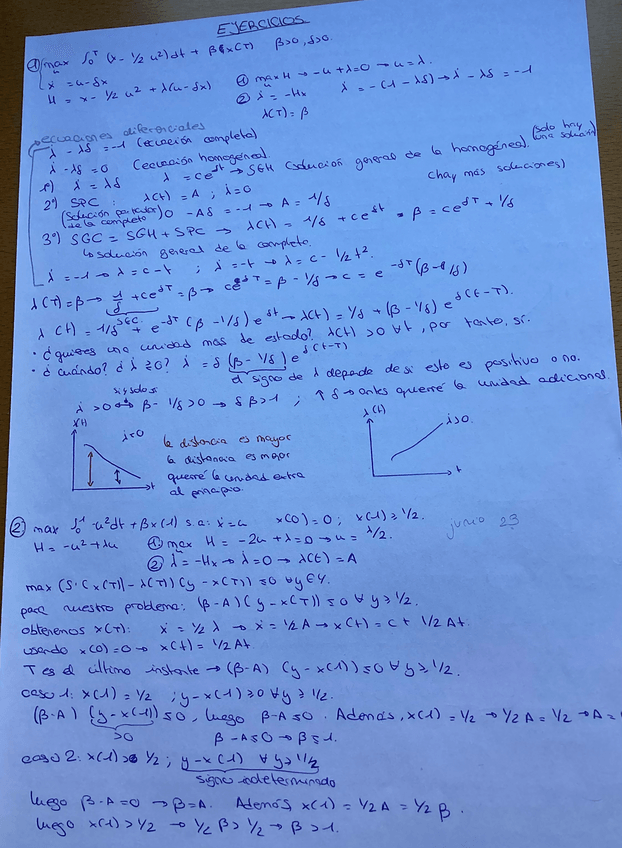 EJERCICIOS
① max ∫₀ᵀ (x - 1/2 u²)dt + βx(T)   β>0, δ>0.
u
ẋ = u - δx
① max H → -u + λ = 0 → u = λ.
H = x - 1/2 u² + λ(u - δx)
② λ̇ = -Hx   λ̇ = -(1 - λδ) → λ̇ - λδ = -1
λ(T) = β
ecuaciones diferenciales
λ̇ - λδ = -1 (ecuación completa)
λ̇ - λδ = 0 (ecuación homogénea)
1º) λ̇ = λδ   λ = ce^δt → SGH (solución general de la homogénea). (solo hay una solución)
2º) SPC: λ(t) = A ; λ̇ = 0   (hay más soluciones)
(solución particular de la completa) 0 - Aδ = -1 → A = 1/δ
3º) SGC = SGH + SPC → λ(t) = 1/δ + ce^δt = β = ce^δT + 1/δ
↳ solución general de la completa.
λ̇ = -1 → λ = c - t ; λ̇ = -t → λ = c - 1/2 t².
λ(T) = β → 1/δ + ce^δT = β → ce^δT = β - 1/δ → c = e^-δT (β - 1/δ)
SGC
λ(t) = 1/δ + e^-δT (β - 1/δ) e^δt → λ(t) = 1/δ + (β - 1/δ) e^δ(t-T).
· ¿quieres una unidad más de estado? λ(t) > 0 ∀t, por tanto, sí.
· ¿cuándo? ¿λ̇ ≷ 0? λ̇ = δ (β - 1/δ) e^δ(t-T)
el signo de λ̇ depende de si esto es positivo o no.
si y solo si
λ̇ > 0 ↔ β - 1/δ > 0 → δβ > 1 ; ↑δ → antes querré la unidad adicional.
λ(t)
λ̇<0
t
la distancia es mayor
la distancia es mayor
querré la unidad extra
al principio
λ(t)
λ̇>0.
t
② max ∫₀¹ -u²dt + βx(1) s.a: ẋ = u   x(0) = 0 ; x(1) ≥ 1/2.
junio 23
H = -u² + λu   ① max H = -2u + λ = 0 → u = λ/2.
② λ̇ = -Hx → λ̇ = 0 → λ(t) = A
max (S'(x(T)) - λ(T)) (y - x(T)) ≤ 0 ∀ y ∈ Y.
para nuestro problema: (β - A)(y - x(T)) ≤ 0 ∀ y ≥ 1/2.
obtenemos x(T): ẋ = 1/2 λ → ẋ = 1/2 A → x(t) = c + 1/2 At.
usando x(0) = 0 → x(t) = 1/2 At
T es el último instante → (β - A) (y - x(1)) ≤ 0 ∀ y ≥ 1/2.
caso 1: x(1) = 1/2 ; y - x(1) ≥ 0 ∀ y ≥ 1/2.
(β - A) (y - x(1)) ≤ 0, luego β - A ≤ 0. Además, x(1) = 1/2 → 1/2 A = 1/2 → A =
≥0   β - A ≤ 0 → β ≤ 1.
caso 2: x(1) > 1/2 ; y - x(1) ∀ y ≥ 1/2
signo indeterminado
luego β - A = 0 → β = A. Además x(1) = 1/2 A = 1/2 β.
luego x(1) > 1/2 → 1/2 β > 1/2 → β > 1.